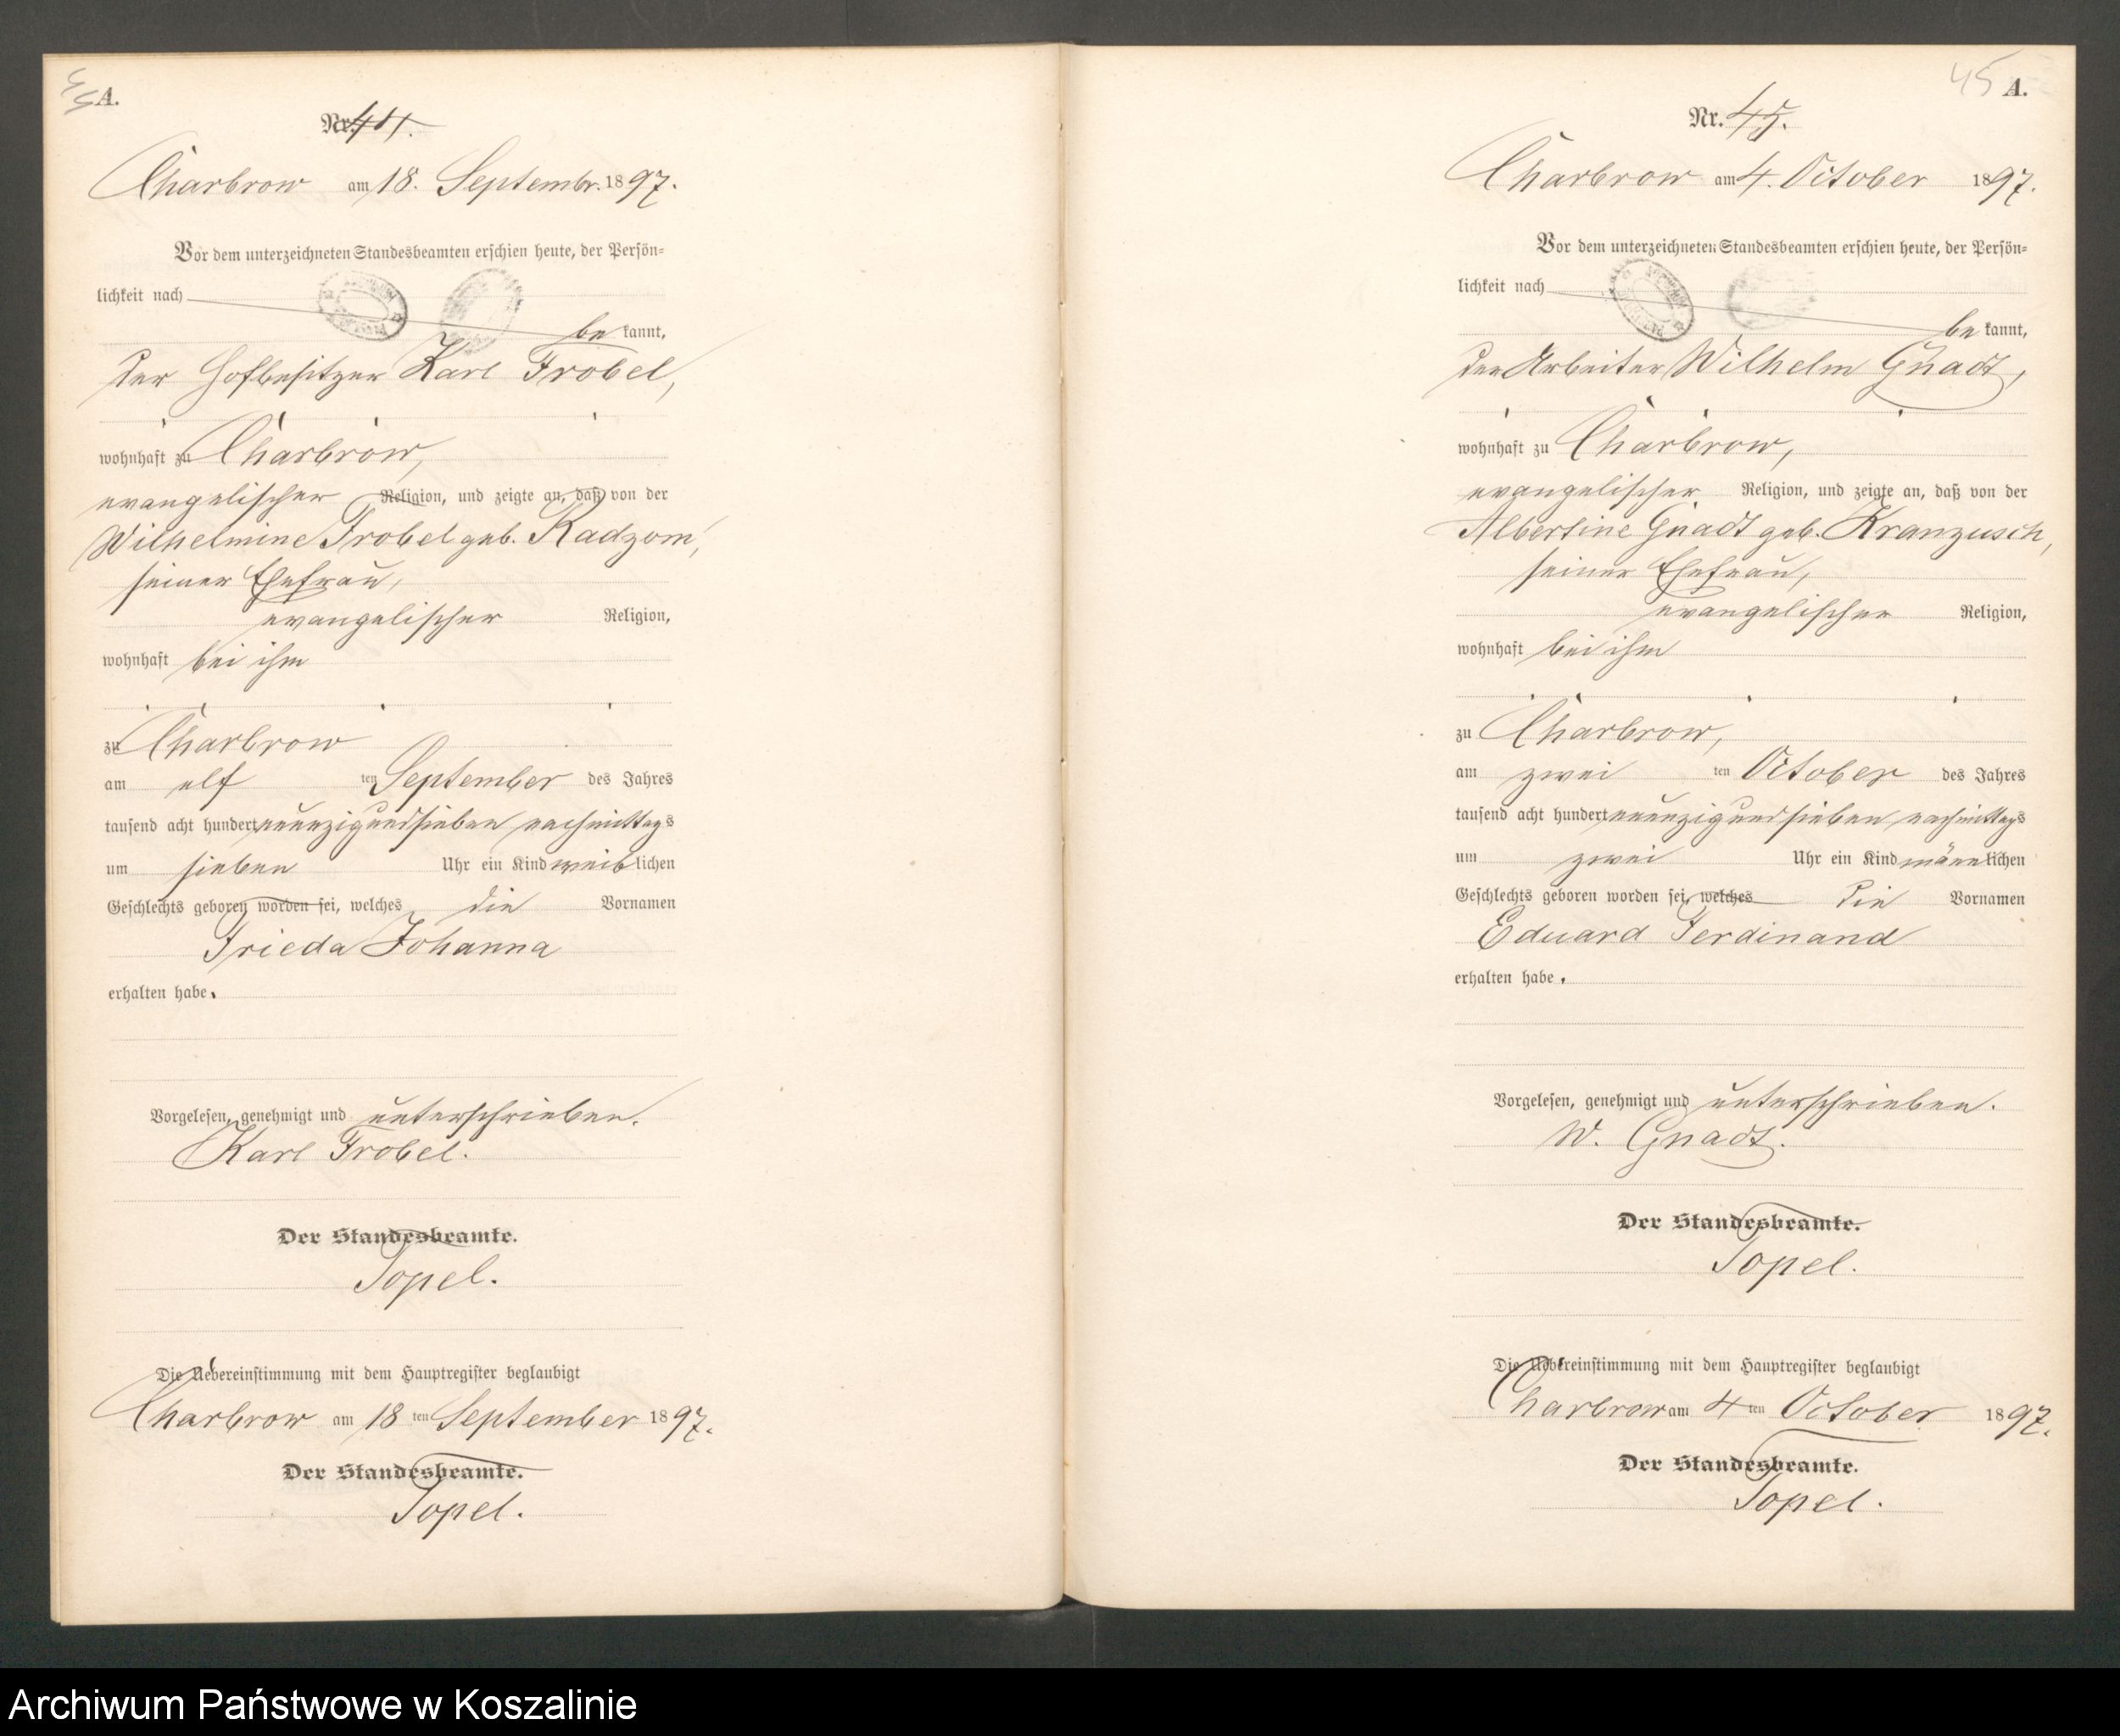 A.
Nr. 44.
Charbrow am 18. Septembr. 1897.
Vor dem unterzeichneten Standesbeamten erschien heute, der Persön-
lichkeit nach
be kannt,
der Hofbesitzer Karl Frobel,
wohnhaft zu Charbrow,
evangelischer Religion, und zeigte an, daß von der
Wilhelmine Frobel geb. Radzom,
seiner Ehefrau,
evangelischer Religion,
wohnhaft bei ihm
zu Charbrow
am elf ten September des Jahres
tausend acht hundert neunzig und sieben nachmittags
um sieben Uhr ein Kind weiblichen
Geschlechts geboren worden sei, welches die Vornamen
Frieda Johanna
erhalten habe.
Vorgelesen, genehmigt und unterschrieben.
Karl Frobel.
Der Standesbeamte.
Topel.
Die Uebereinstimmung mit dem Hauptregister beglaubigt
Charbrow am 18 ten September 1897.
Der Standesbeamte.
Topel.
45 A.
Nr. 45.
Charbrow am 4. October 1897.
Vor dem unterzeichneten Standesbeamten erschien heute, der Persön-
lichkeit nach
be kannt,
der Arbeiter Wilhelm Gnadt,
wohnhaft zu Charbrow,
evangelischer Religion, und zeigte an, daß von der
Albertine Gnadt geb. Kranzusch,
seiner Ehefrau,
evangelischer Religion,
wohnhaft bei ihm
zu Charbrow,
am zwei ten October des Jahres
tausend acht hundert neunzig und sieben nachmittags
um zwei Uhr ein Kind männlichen
Geschlechts geboren worden sei, welches die Vornamen
Eduard Ferdinand
erhalten habe.
Vorgelesen, genehmigt und unterschrieben.
W. Gnadt.
Der Standesbeamte.
Topel.
Die Uebereinstimmung mit dem Hauptregister beglaubigt
Charbrow am 4 ten October 1897.
Der Standesbeamte.
Topel.
Archiwum Państwowe w Koszalinie